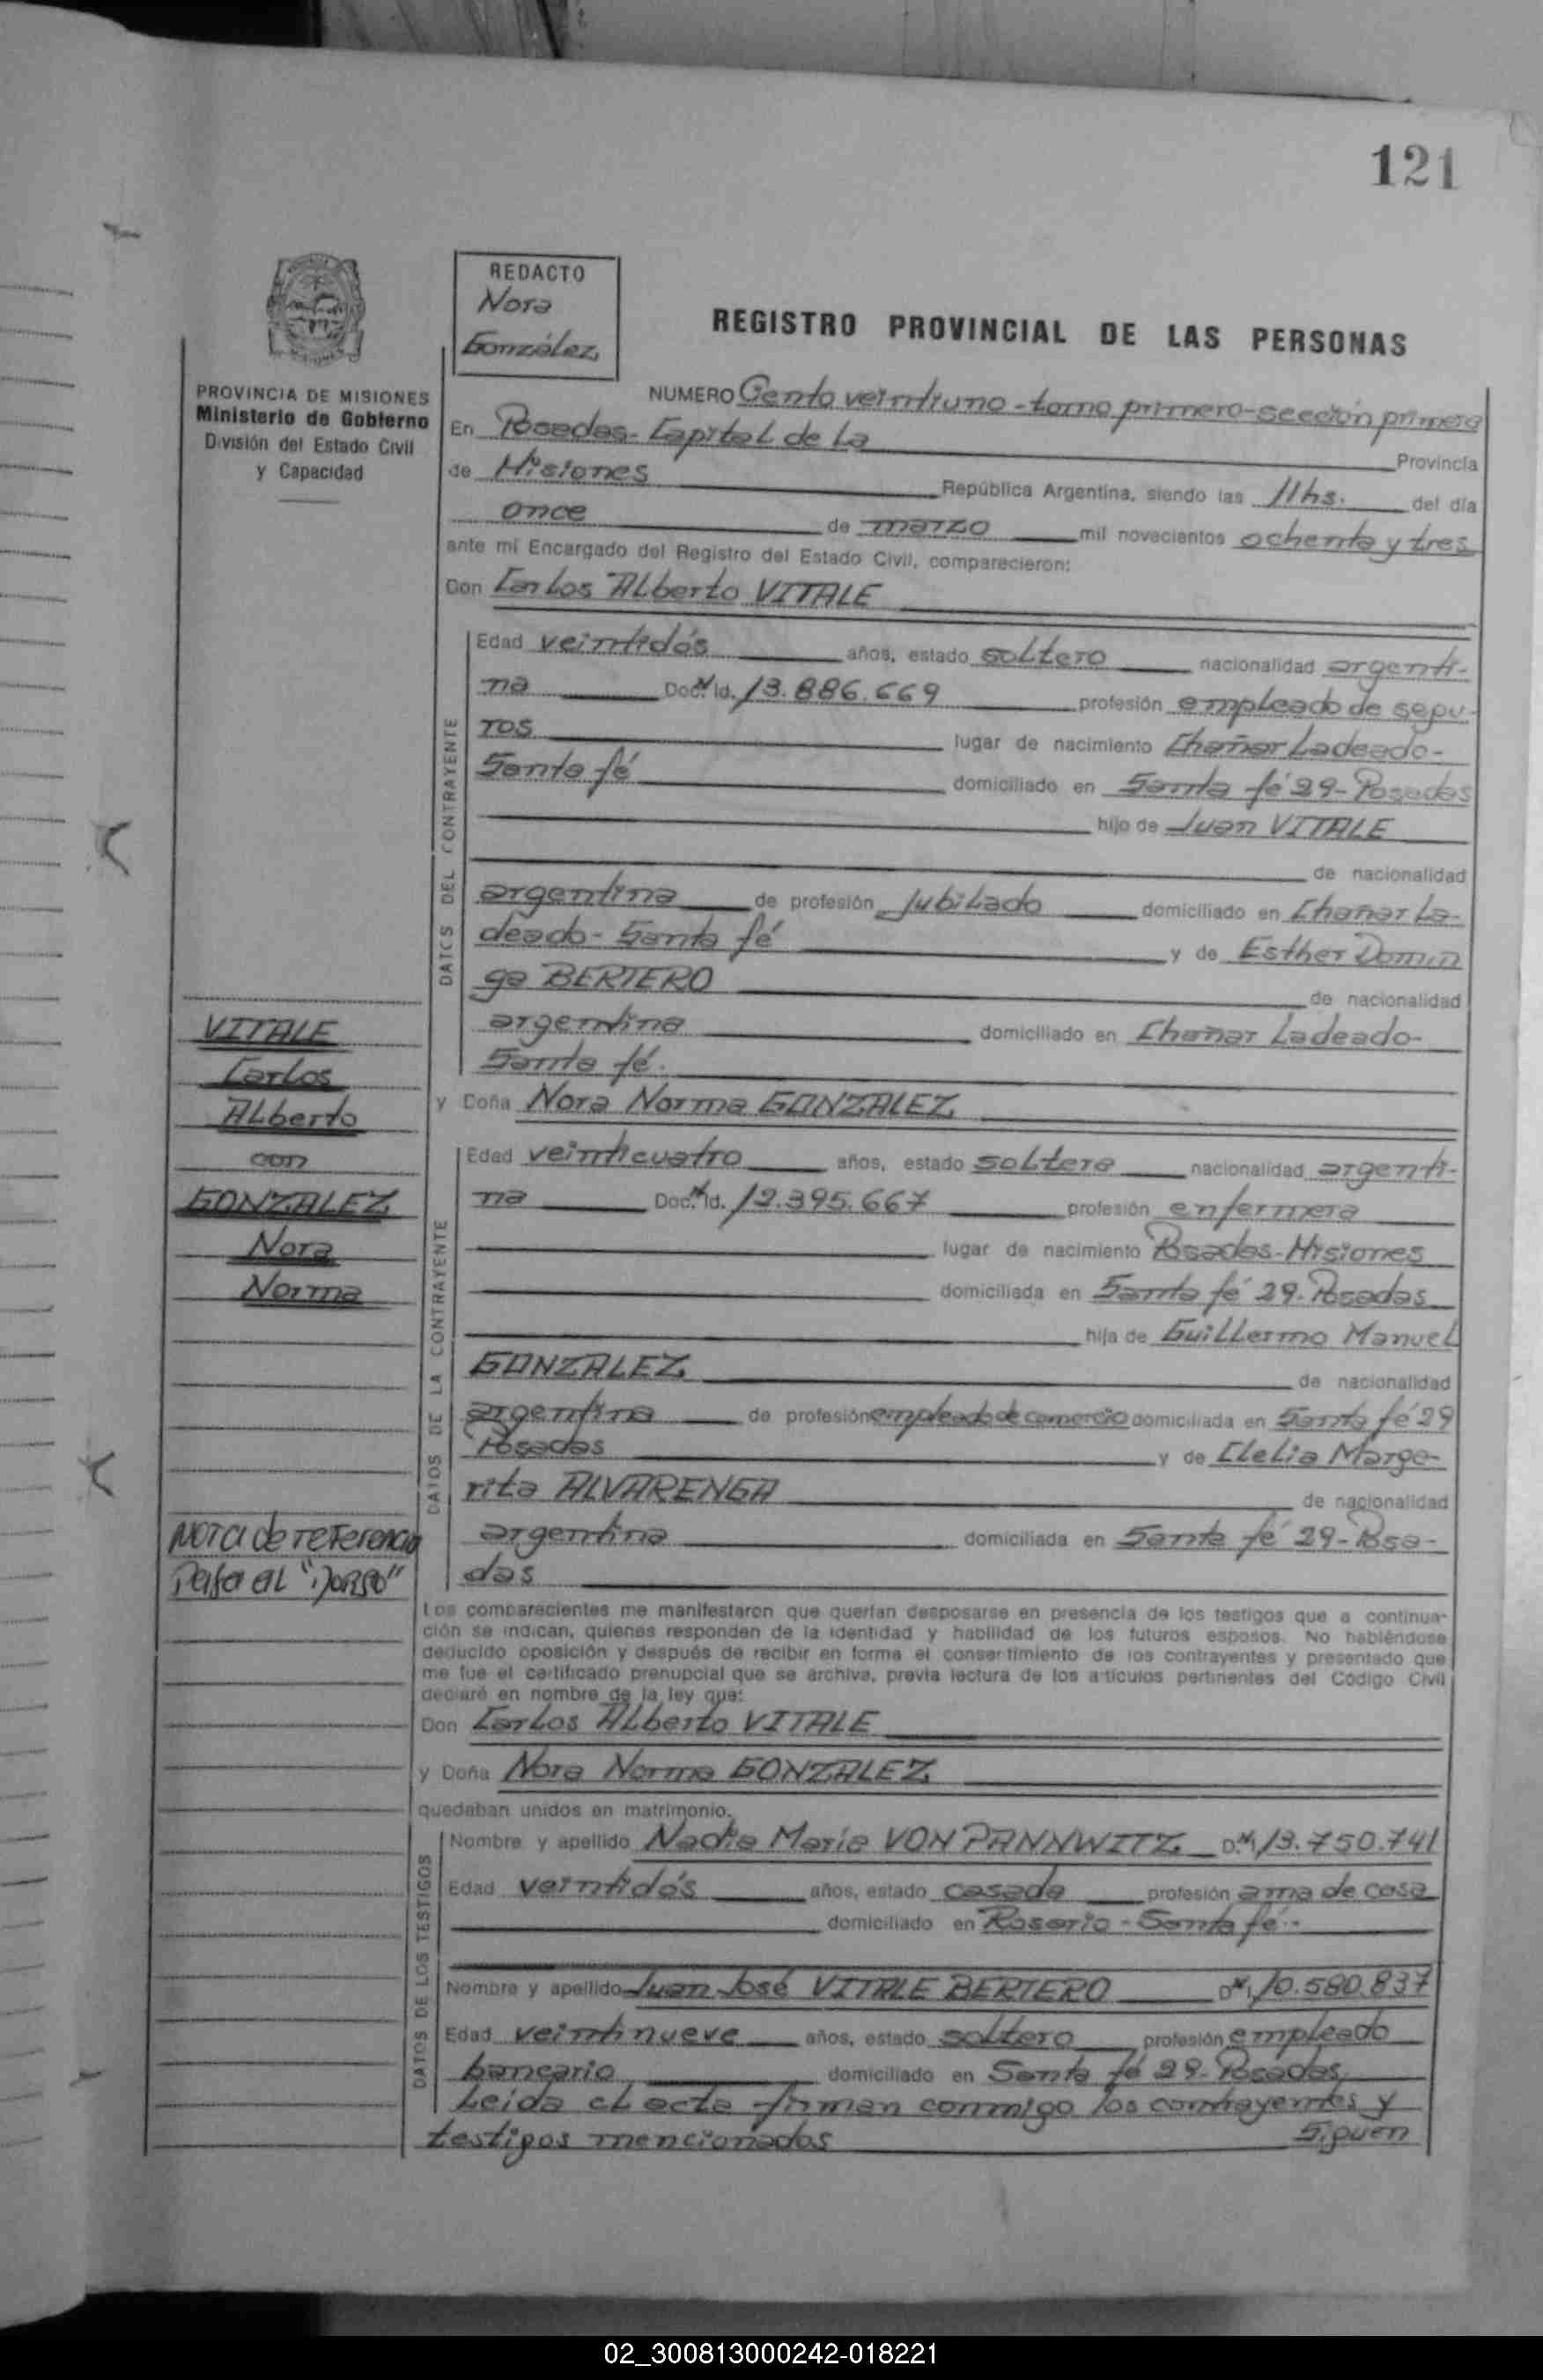 121
REDACTO
Nora
González
REGISTRO PROVINCIAL DE LAS PERSONAS
PROVINCIA DE MISIONES
Ministerio de Gobierno
División del Estado Civil
y Capacidad
NUMERO Ciento veintiuno - tomo primero - sección primera
En Posadas - Capital de La Provincia
de Misiones República Argentina, siendo las 11 hs. del día
once de marzo mil novecientos ochenta y tres
ante mi Encargado del Registro del Estado Civil, comparecieron:
Don Carlos Alberto VITALE
DATOS DEL CONTRAYENTE
Edad veintidós años, estado soltero nacionalidad argenti-
na Doc. Id. 13.886.669 profesión empleado de segu-
ros lugar de nacimiento Chañar Ladeado-
Santa fé domiciliado en Santa fé 29 - Posadas
hijo de Juan VITALE
de nacionalidad
argentina de profesión jubilado domiciliado en Chañar La-
deado - Santa fé y de Esther Domin
ga BERTERO de nacionalidad
argentina domiciliado en Chañar Ladeado-
Santa fé.
y Doña Nora Norma GONZALEZ
DATOS DE LA CONTRAYENTE
Edad veinticuatro años, estado soltera nacionalidad argenti-
na Doc. Id. 12.395.667 profesión enfermera
lugar de nacimiento Posadas - Misiones
domiciliada en Santa fé 29 - Posadas
hija de Guillermo Manuel
GONZALEZ de nacionalidad
argentina de profesión empleado de comercio domiciliada en Santa fé 29
Posadas y de Clelia Marga-
rita ALVARENGA de nacionalidad
argentina domiciliada en Santa fé 29 - Posa-
das
VITALE
Carlos
Alberto
con
GONZALEZ
Nora
Norma
Nota de referencia
Pasa al "Dorso"
Los comparecientes me manifestaron que querían desposarse en presencia de los testigos que a continua-
ción se indican, quienes responden de la identidad y habilidad de los futuros esposos. No habiéndose
deducido oposición y después de recibir en forma el consentimiento de los contrayentes y presentado que
me fue el certificado prenupcial que se archiva, previa lectura de los artículos pertinentes del Código Civil
declaré en nombre de la ley que:
Don Carlos Alberto VITALE
y Doña Nora Norma GONZALEZ
quedaban unidos en matrimonio.
DATOS DE LOS TESTIGOS
Nombre y apellido Nadia María VON PANNWITZ D.N.I. 13.750.741
Edad veintidós años, estado casada profesión ama de casa
domiciliado en Rosario - Santa fé -
Nombre y apellido Juan José VITALE BERTERO D.N.I. 10.580.837
Edad veintinueve años, estado soltero profesión empleado
bancario domiciliado en Santa fé 29 - Posadas
Leída el acta firman conmigo los contrayentes y
testigos mencionados Siguen
02_300813000242-018221